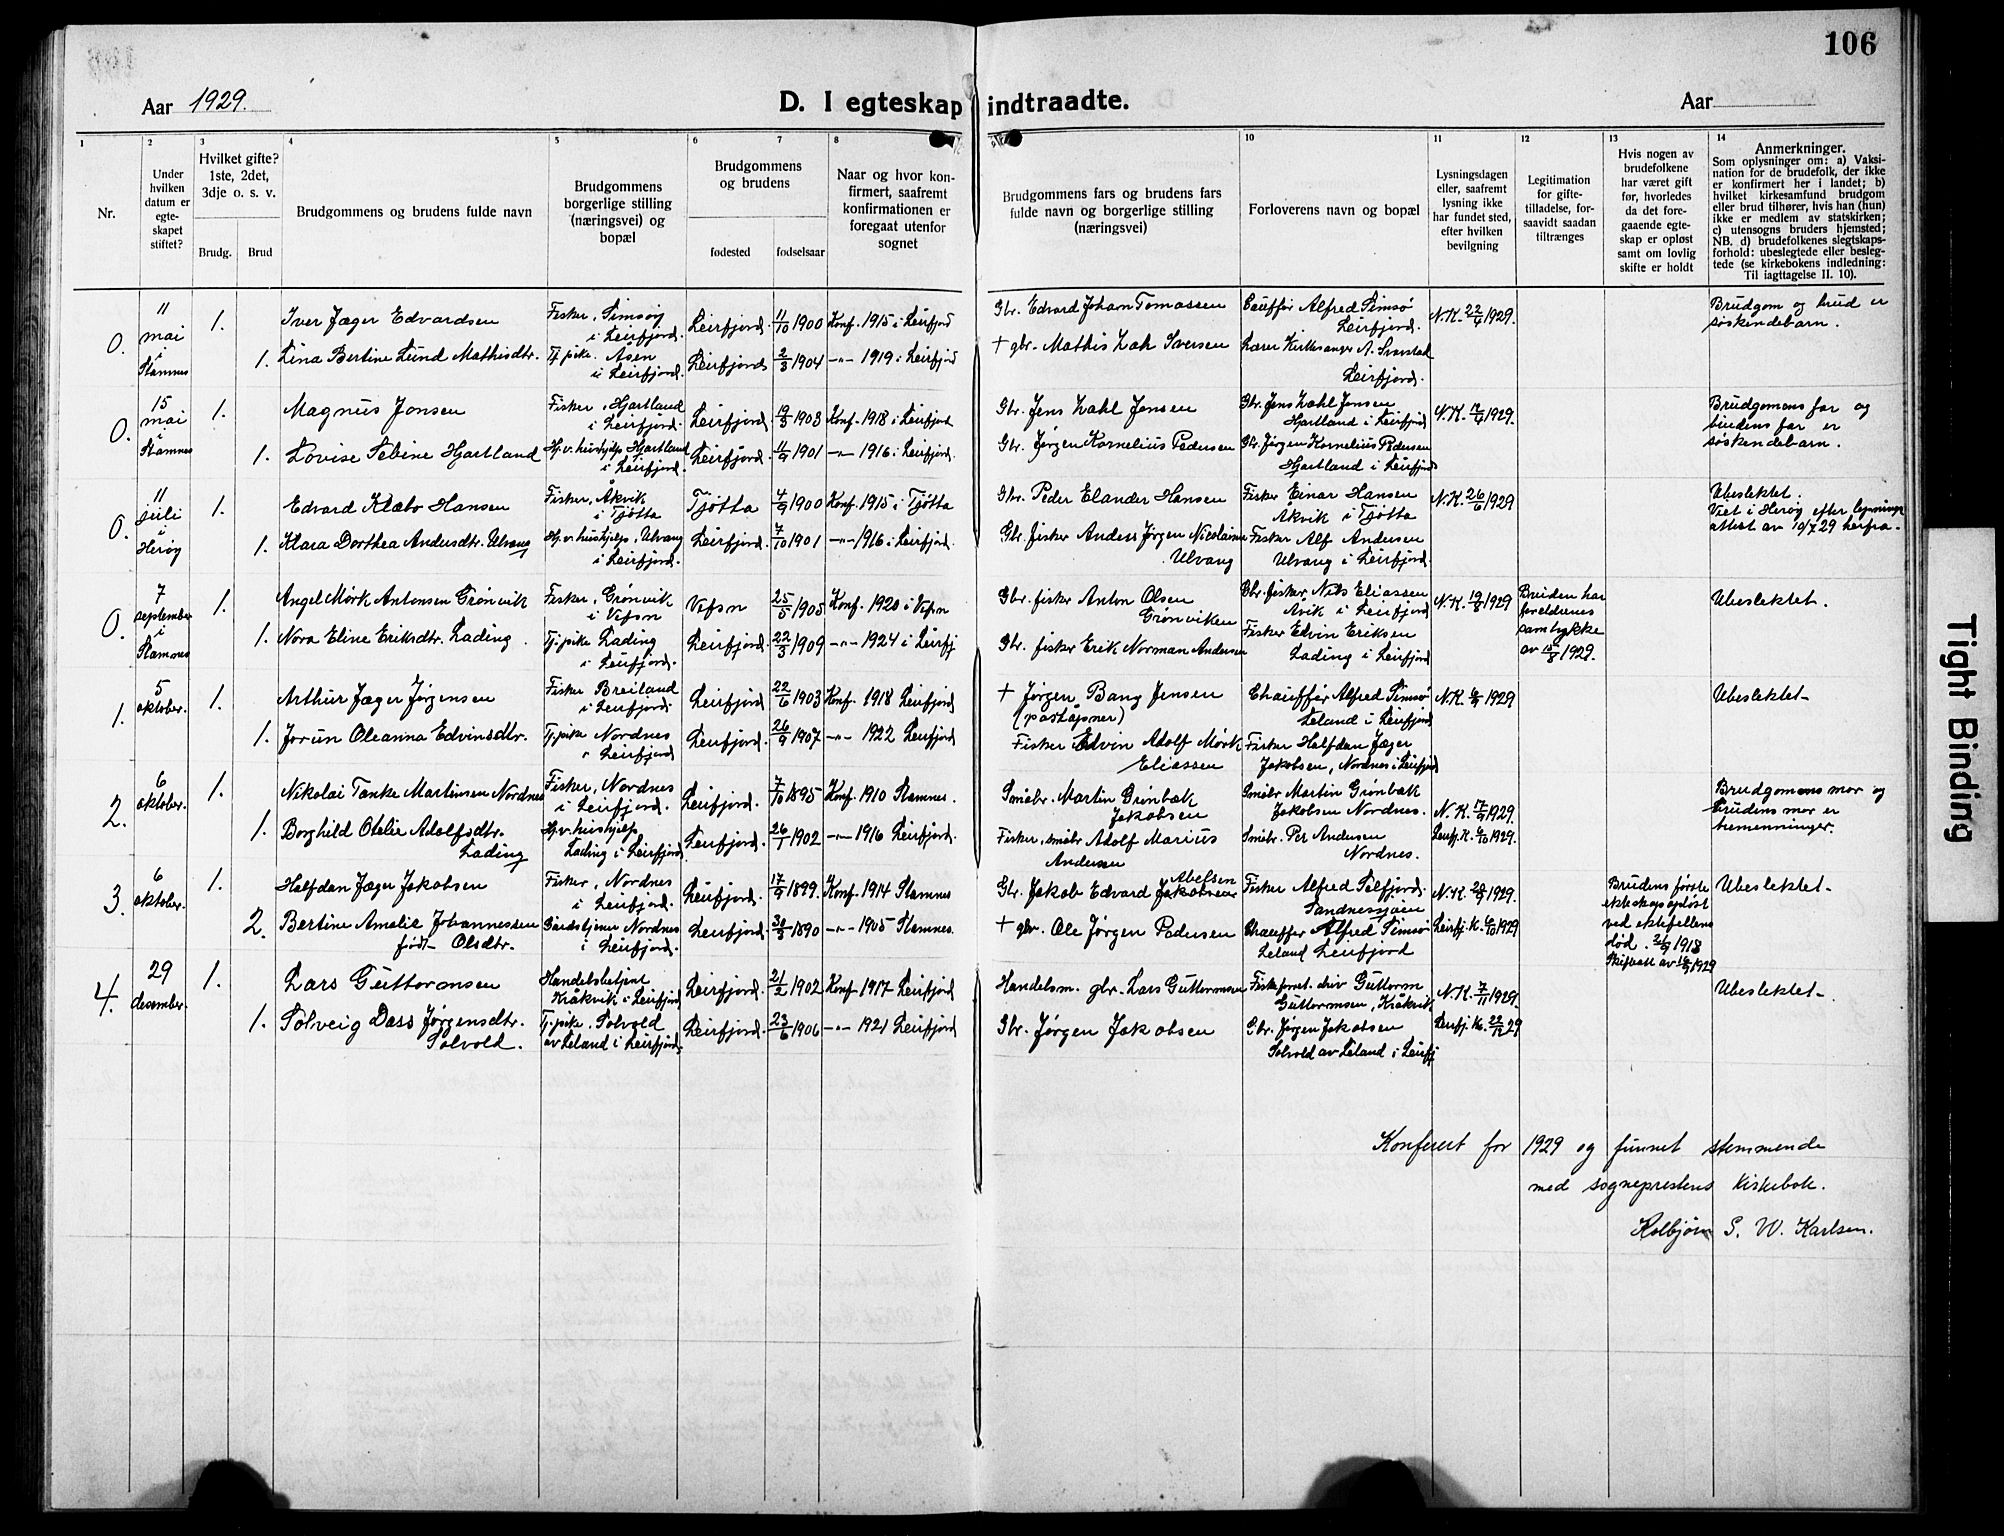 106
Aar 1929.
D. I egteskap indtraadte.
Aar
1
2
3
4
5
6
7
8
10
11
12
13
14
Nr.
Under hvilken datum er egte-skapet stiftet?
Hvilket gifte? 1ste, 2det, 3dje o. s. v.
Brudg.
Brud
Brudgommens og brudens fulde navn
Brudgommens borgerlige stilling (næringsvei) og bopæl
Brudgommens og brudens
fødested
fødselsaar
Naar og hvor kon-firmert, saafremt konfirmationen er foregaat utenfor sognet
Brudgommens fars og brudens fars fulde navn og borgerlige stilling (næringsvei)
Forloverens navn og bopæl
Lysningsdagen eller, saafremt lysning ikke har fundet sted, efter hvilken bevilgning
Legitimation for gifte-tilladelse, for-saavidt saadan tiltrænges
Hvis nogen av brudefolkene har været gift før, hvorledes da det fore-gaaende egte-skap er opløst samt om lovlig skifte er holdt
Anmerkninger.
Som oplysninger om: a) Vaksi-nation for de brudefolk, der ikke er konfirmert her i landet; b) hvilket kirkesamfund brudgom eller brud tilhører, hvis han (hun) ikke er medlem av statskirken; c) utensogns bruders hjemsted; NB. d) brudefolkenes slegtskaps-forhold: ubeslegtede eller besleg-tede (se kirkebokens indledning: Til iagttagelse II. 10).
0. 11 mai i Stamnes 1. Iver Jæger Edvardsen Fisker, Simsøy i Leirfjord. Leirfjord. 11/10 1900 Konf. 1915 i Leirfjord Gbr. Edvard Johan Tomassen Chauffør Alfred Simsø Leirfjord. N.K. 22/4 1929. Brudgom og brud er søskendebarn.
1. Lina Bertine Lund Mathisdtr. Tj.pike. Åsen i Leirfjord. Leirfjord 2/3 1904 -"- 1919 i Leirfjord + gbr. Mathis Zak Iversen Lærer Kirkesanger A. Svarstad Leirfjord.
0. 15 mai i Stamnes 1. Magnus Jonsen Fisker, Hjartland i Leirfjord. Leirfjord. 19/3 1903 Konf. 1918 i Leirfjord Gbr. Jens Zahl Jensen Gbr. Jens Zahl Jensen Hjartland i Leirfjord N.K. 1929. Brudgomens far og brudens far er søskendebarn.
1. Lovise Sebine Hjartland Hj. v. hushjelp Hjartland i Leirfjord. Leirfjord. 11/9 1901 -"- 1916 i Leirfjord. Gbr. Jørgen Kornelius Pedersen Gbr. Jørgen Kornelius Pedersen Hjartland i Leirfjord
0. 11 juli i Herøy 1. Edvard Klæbo Hansen Fisker, Åkvik i Tjøtta Tjøtta 4/9 1900 Konf. 1915 i Tjøtta Gbr. Peder Elander Hansen Fisker Einar Hansen Åkvik i Tjøtta N.K. 26/6 1929 Ubeslektet. Viet i Herøy efter lysnings attest av 10/7 29 herfra.
1. Klara Dorthea Andersdtr. Ulvang Hj. v. hushjelp, Ulvang i Leirfjord. Leirfjord. 7/10 1901 -"- 1916 i Leirfjord. Gbr. fisker Anders Jørgen Nicolaisen Ulvang Fisker Alf Andersen Ulvang i Leirfjord.
0. 7 september i Stamnes 1. Angel Mørk Antonsen Grønvik Fisker, Grønvik i Vefsn Vefsn 25/5 1905 Konf. 1920 i Vefsn Gbr. fisker Anton Olsen Grønviken Gbr. fisker Nils Eliassen Årvik i Leirfjord N.K. 19/8 1929 Bruden har foreldrenes samtykke av 1929. Ubeslektet.
1. Nora Eline Eriksdtr. Lading. Tj. pike Lading i Leirfjord. Leirfjord. 22/3 1909 -"- 1924 i Leirfj Gbr. fisker Erik Norman Andersen Fisker Edvin Eriksen Lading i Leirfjord
1. 5 oktober. 1. Arthur Jæger Jørgensen Fisker Breiland i Leirfjord. Leirfjord. 22/6 1903 Konf. 1918 Leirfjord + Jørgen Bang Jensen (poståpner) Chauffør Alfred Simsø Leland i Leirfjord N.K. 1929 Ubeslektet
1. Jorun Oleanna Edvinsdtr. Tj.pike Nordnes i Leirfjord. Leirfjord. 26/9 1907 -"- 1922 Leirfjord Fisker Edvin Adolf Mørk Eliassen Fisker Halfdan Jæger Jakobsen, Nordnes i Leirfjord
2. 6 oktober. 1. Nikolai Tanke Martinsen Nordnes Fisker, Nordnes i Leirfjord. Leirfjord. 7/10 1895 Konf. 1910 Stamnes. Småbr. Martin Grønbæk Jakobsen Småbr Martin Grønbæk Jakobsen Nordnes. N.K. 17/9 1929. Brudgomens mor og brudens mor er tremenninger.
1. Borghild Otelie Adolfsdtr. Lading Hj. v. hushjelp Lading i Leirfjord. Leirfjord. 26/1 1902 -"- 1916 Leirfjord. Fisker, småbr Adolf Marius Andersen Småbr. Per Andersen Nordnes. Leirfj. K. 6/10 1929.
3. 6 oktober. 1. Halfdan Jæger Jakobsen Fisker, Nordnes i Leirfjord. Leirfjord. 17/9 1899. Konf. 1914 Stamnes Gbr. Jakob Edvard Jakobsen Abelsen Fisker Alfred Selfjord. Sandnessjøen N.K. 1929. Brudens første ekteskap opløst ved ektefellens død. 21/9 1918 Skifteatt av 1929 Ubeslektet
2. Bertine Amalie Johannessen født Olsdtr. Gårdstjener Nordnes i Leirfjord. Leirfjord. 1890 -"- 1905 Stamnes. + gbr. Ole Jørgen Pedersen Chauffør Alfred Simsø Leland Leirfjord Leirfj. K. 6/10 1929
4. 29 desember. 1. Lars Guttormsen Handelsbetjent Kråkvik i Leirfjord Leirfjord. 21/2 1902 Konf. 1917 Leirfjord Handelsm. gbr. Lars Guttormsen Fiskeforret. driv Guttorm Guttormsen, Kråkvik N.K. 7/11 1929. Ubeslektet
1. Solveig Dass Jørgensdtr. Solvold. Tj. pike, Solvold av Leland i Leirfjord. Leirfjord. 23/6 1906 -"- 1921 Leirfjord Gbr. Jørgen Jakobsen Gbr. Jørgen Jakobsen Solvold av Leland i Leirfj Leirfj. K. 22/12 29
Konferert for 1929 og funnet stemmende
med sogneprestens kirkebok.
Kolbjørn S. W. Karlsen.
Tight Binding